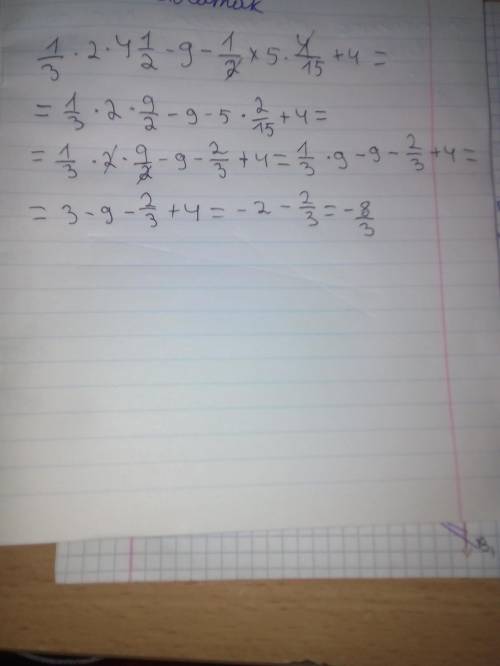 1/3 · 2 · 4 1/2 - 9 - 1/2 × 5 · 4/15 + 4 =
= 1/3 · 2 · 9/2 - 9 - 5 · 2/15 + 4 =
= 1/3 · 2 · 9/2 - 9 - 2/3 + 4 = 1/3 · 9 - 9 - 2/3 + 4 =
= 3 - 9 - 2/3 + 4 = -2 - 2/3 = -8/3